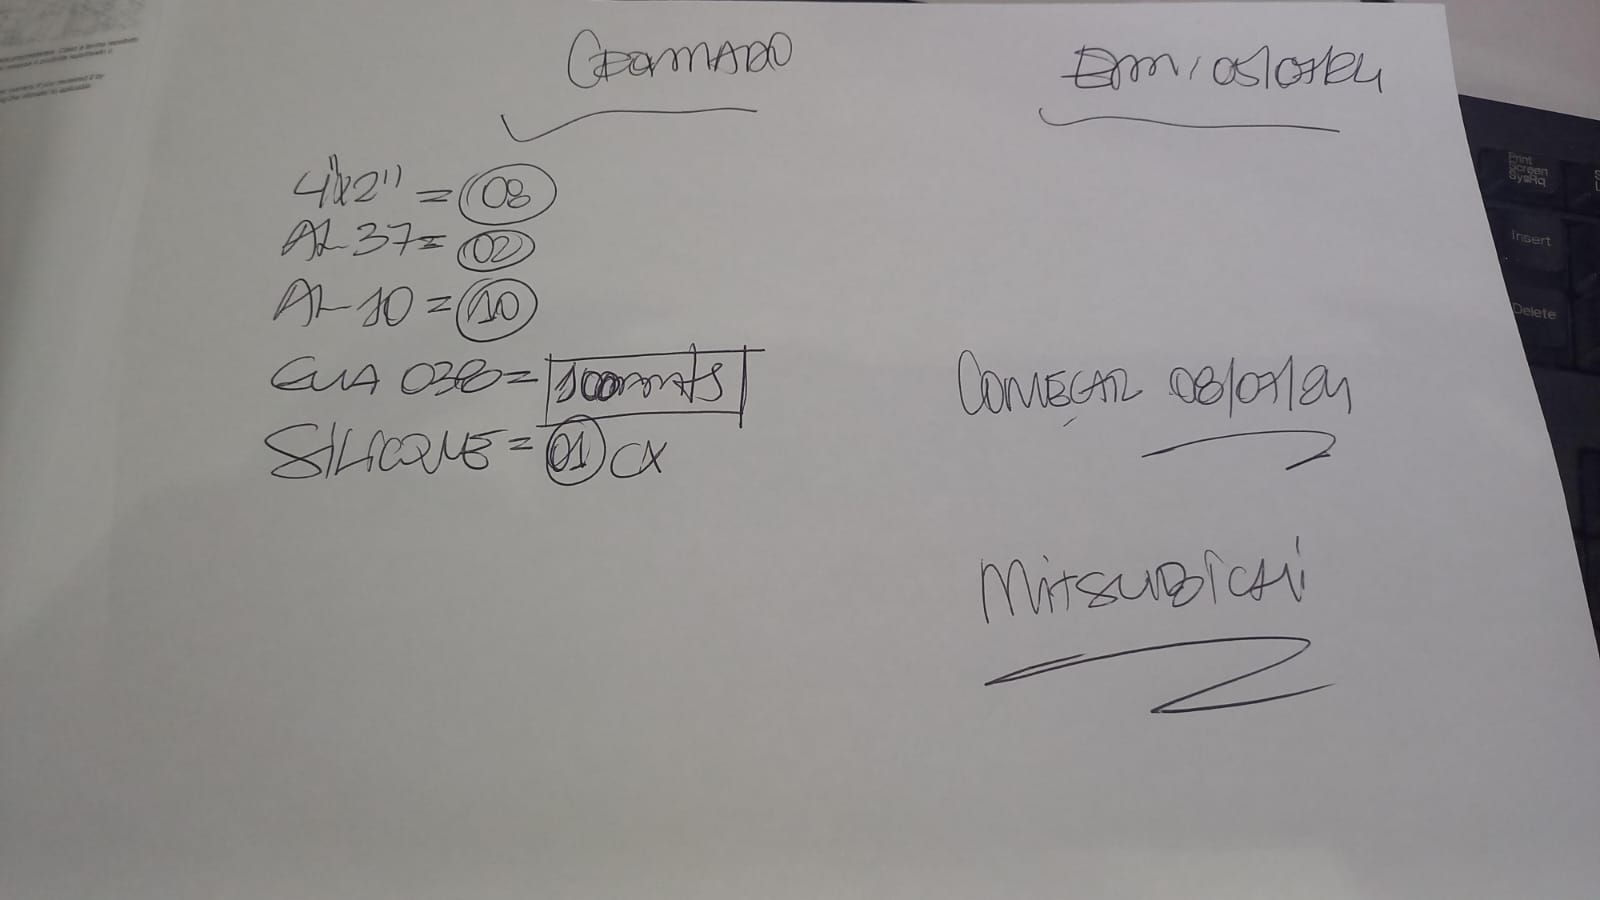 GRAMADO
Em, 05/07/24
4"x2" = 08
AL 37 = 02
AL-10 = 10
GUA 038 = 100 mts
SILICONE = 01 CX
COMEÇAR 08/07/24
MITSUBICHI
Print
Screen
SysRq
Insert
Delete